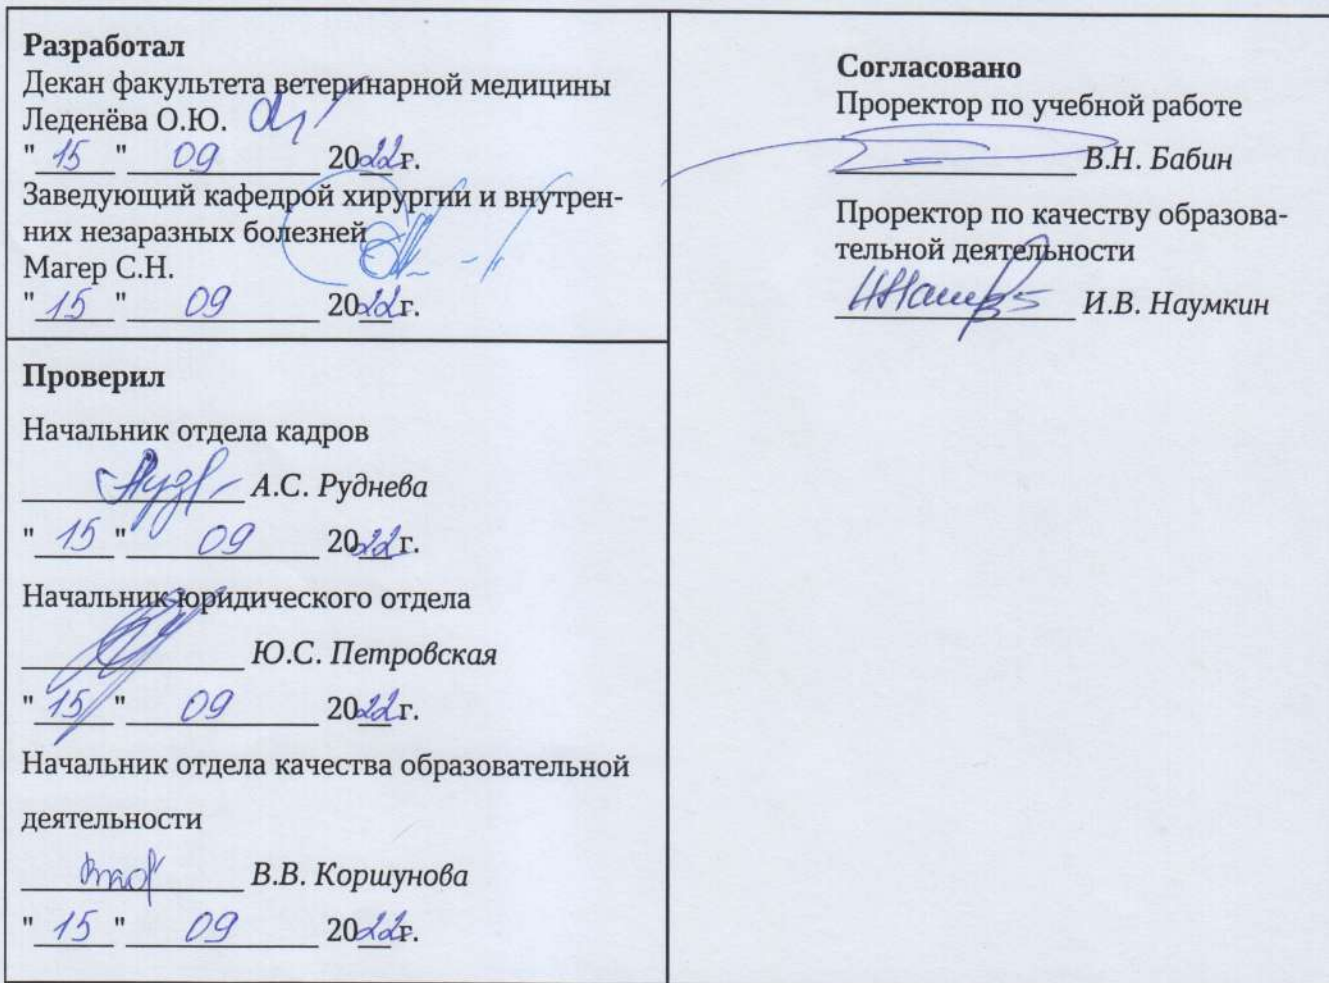 Разработал
Декан факультета ветеринарной медицины
Леденёва О.Ю.
" 15 " 09 2022г.
Заведующий кафедрой хирургии и внутрен-
них незаразных болезней
Магер С.Н.
" 15 " 09 2022г.
Проверил
Начальник отдела кадров
А.С. Руднева
" 15 " 09 2022г.
Начальник юридического отдела
Ю.С. Петровская
" 15 " 09 2022г.
Начальник отдела качества образовательной
деятельности
В.В. Коршунова
" 15 " 09 2022г.
Согласовано
Проректор по учебной работе
В.Н. Бабин
Проректор по качеству образова-
тельной деятельности
И.В. Наумкин